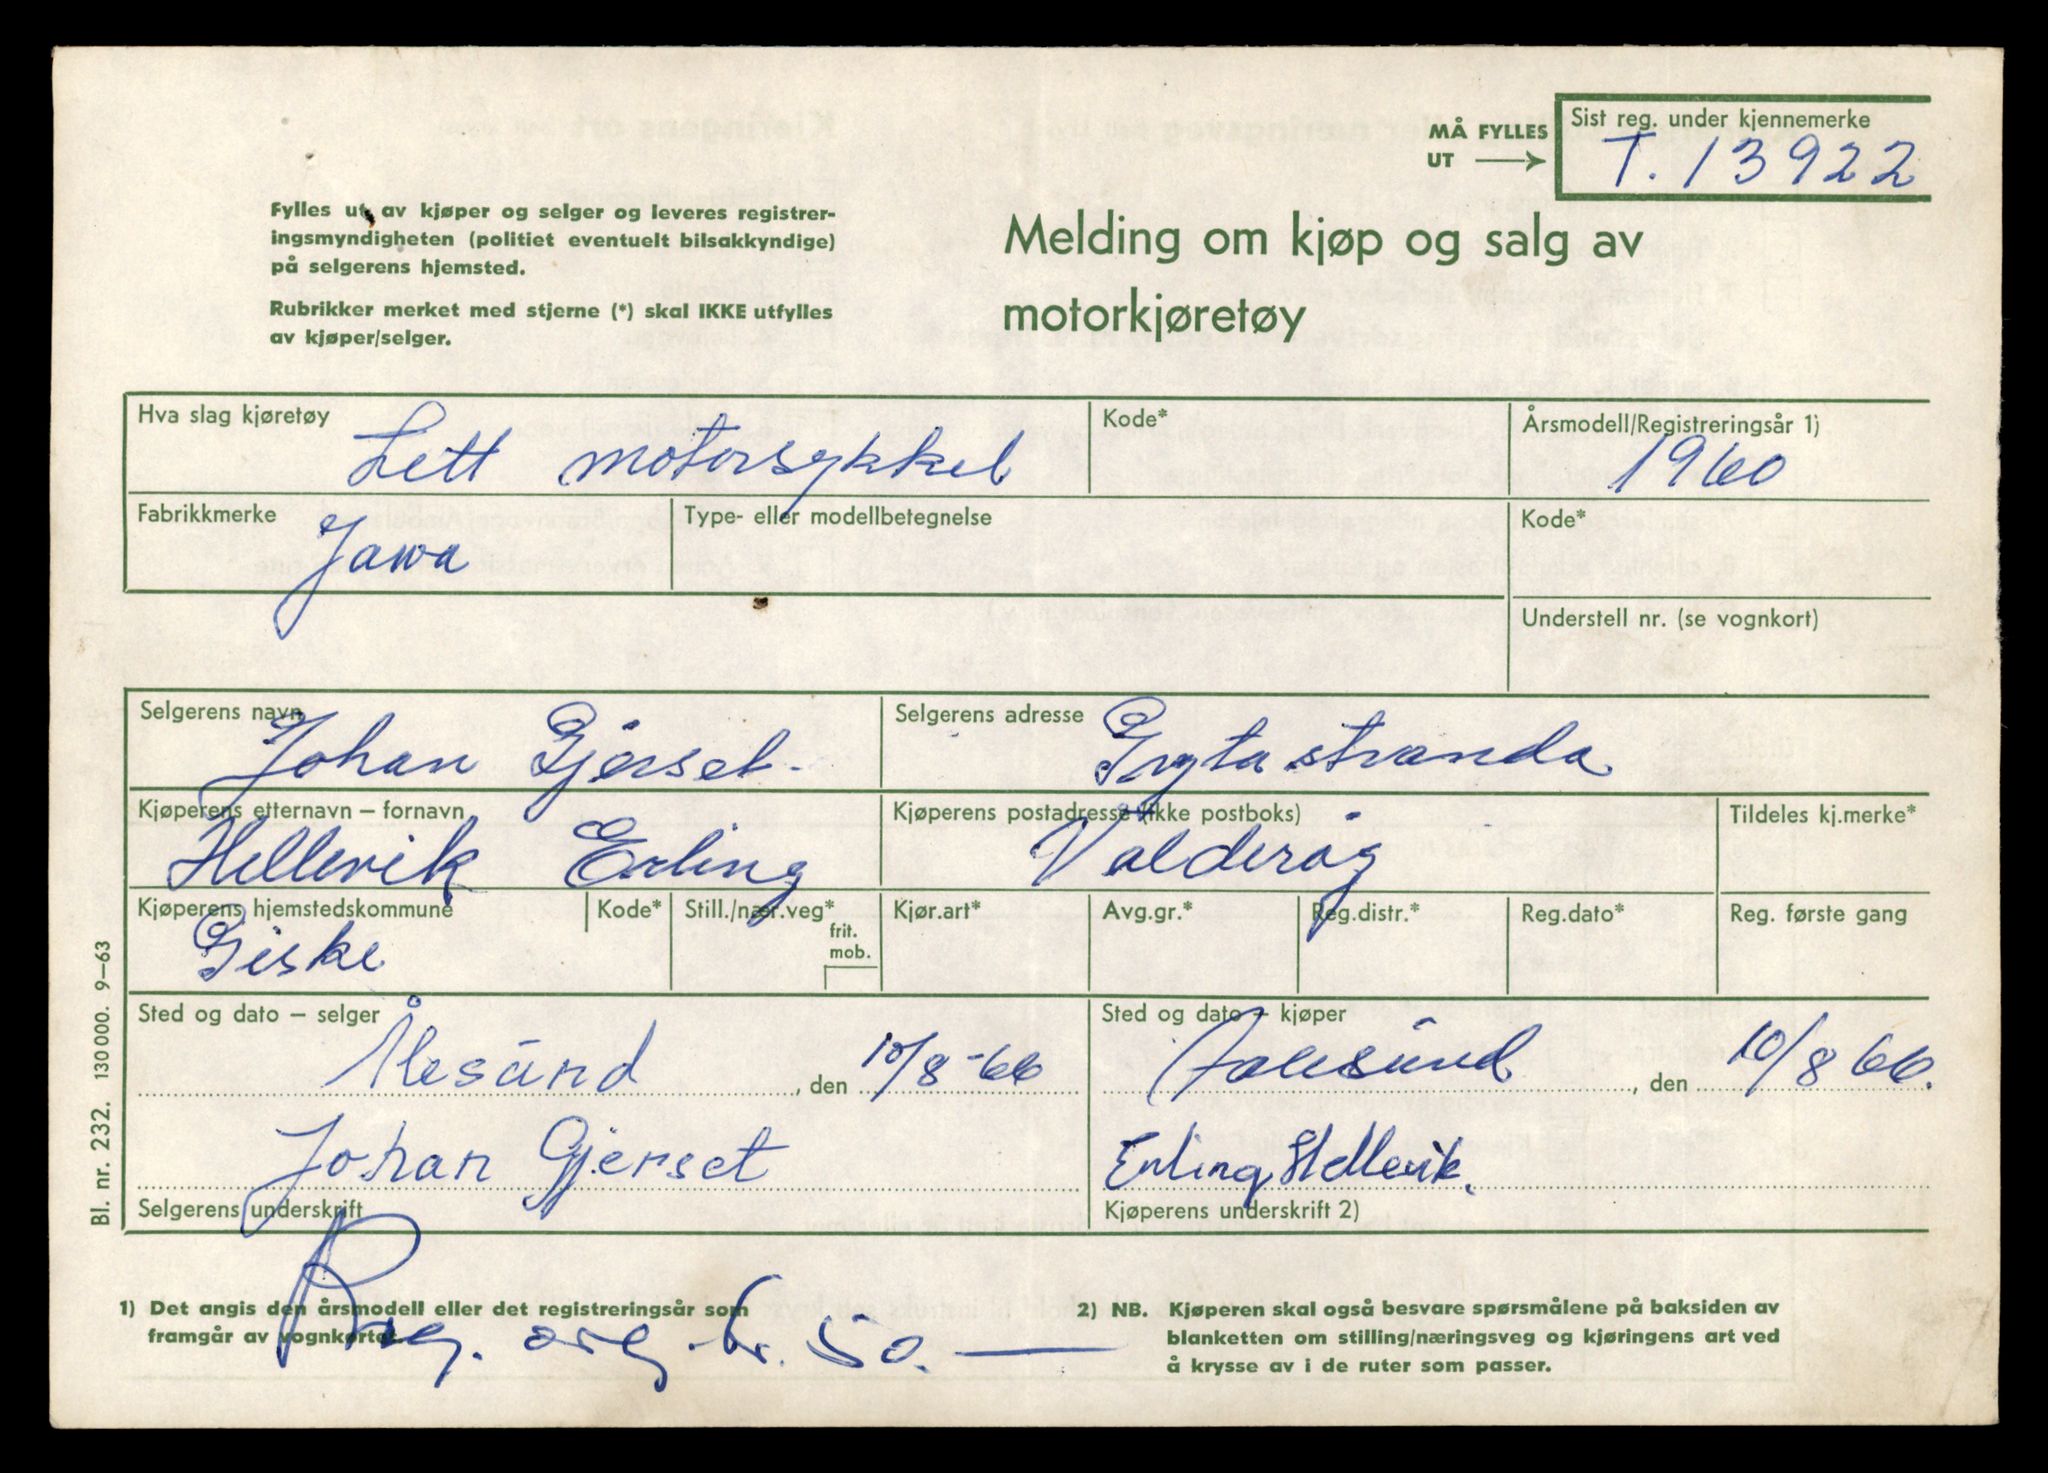 MÅ FYLLES
UT
Sist reg. under kjennemerke
T. 13922
Fylles ut av kjøper og selger og leveres registrer-
ingsmyndigheten (politiet eventuelt bilsakkyndige)
på selgerens hjemsted.
Rubrikker merket med stjerne (*) skal IKKE utfylles
av kjøper/selger.
Melding om kjøp og salg av
motorkjøretøy
Hva slag kjøretøy
Lett motorsykkel
Kode*
Årsmodell/Registreringsår 1)
1960
Fabrikkmerke
Jawa
Type- eller modellbetegnelse
Kode*
Understell nr. (se vognkort)
Selgerens navn
Johan Gjerset.
Selgerens adresse
Grytastranda
Kjøperens etternavn – fornavn
Hellevik Erling
Kjøperens postadresse (ikke postboks)
Valderøy
Tildeles kj.merke*
Kjøperens hjemstedskommune
Giske
Kode*
Still./nær.veg*
frit.
mob.
Kjør.art*
Avg.gr.*
Reg.distr.*
Reg.dato*
Reg. første gang
Sted og dato – selger
Ålesund, den 10/8-66
Sted og dato – kjøper
Aalesund, den 10/8 66.
Johan Gjerset
Selgerens underskrift
Erling Hellevik.
Kjøperens underskrift 2)
Bl. nr. 232. 130 000. 9–63
Reg. avg. kr. 50.—
1) Det angis den årsmodell eller det registreringsår som
framgår av vognkortet.
2) NB. Kjøperen skal også besvare spørsmålene på baksiden av
blanketten om stilling/næringsveg og kjøringens art ved
å krysse av i de ruter som passer.